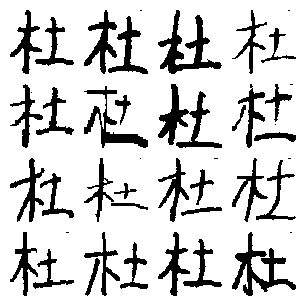 杜杜杜杜
杜杜杜杜
杜杜杜杜
杜杜杜杜